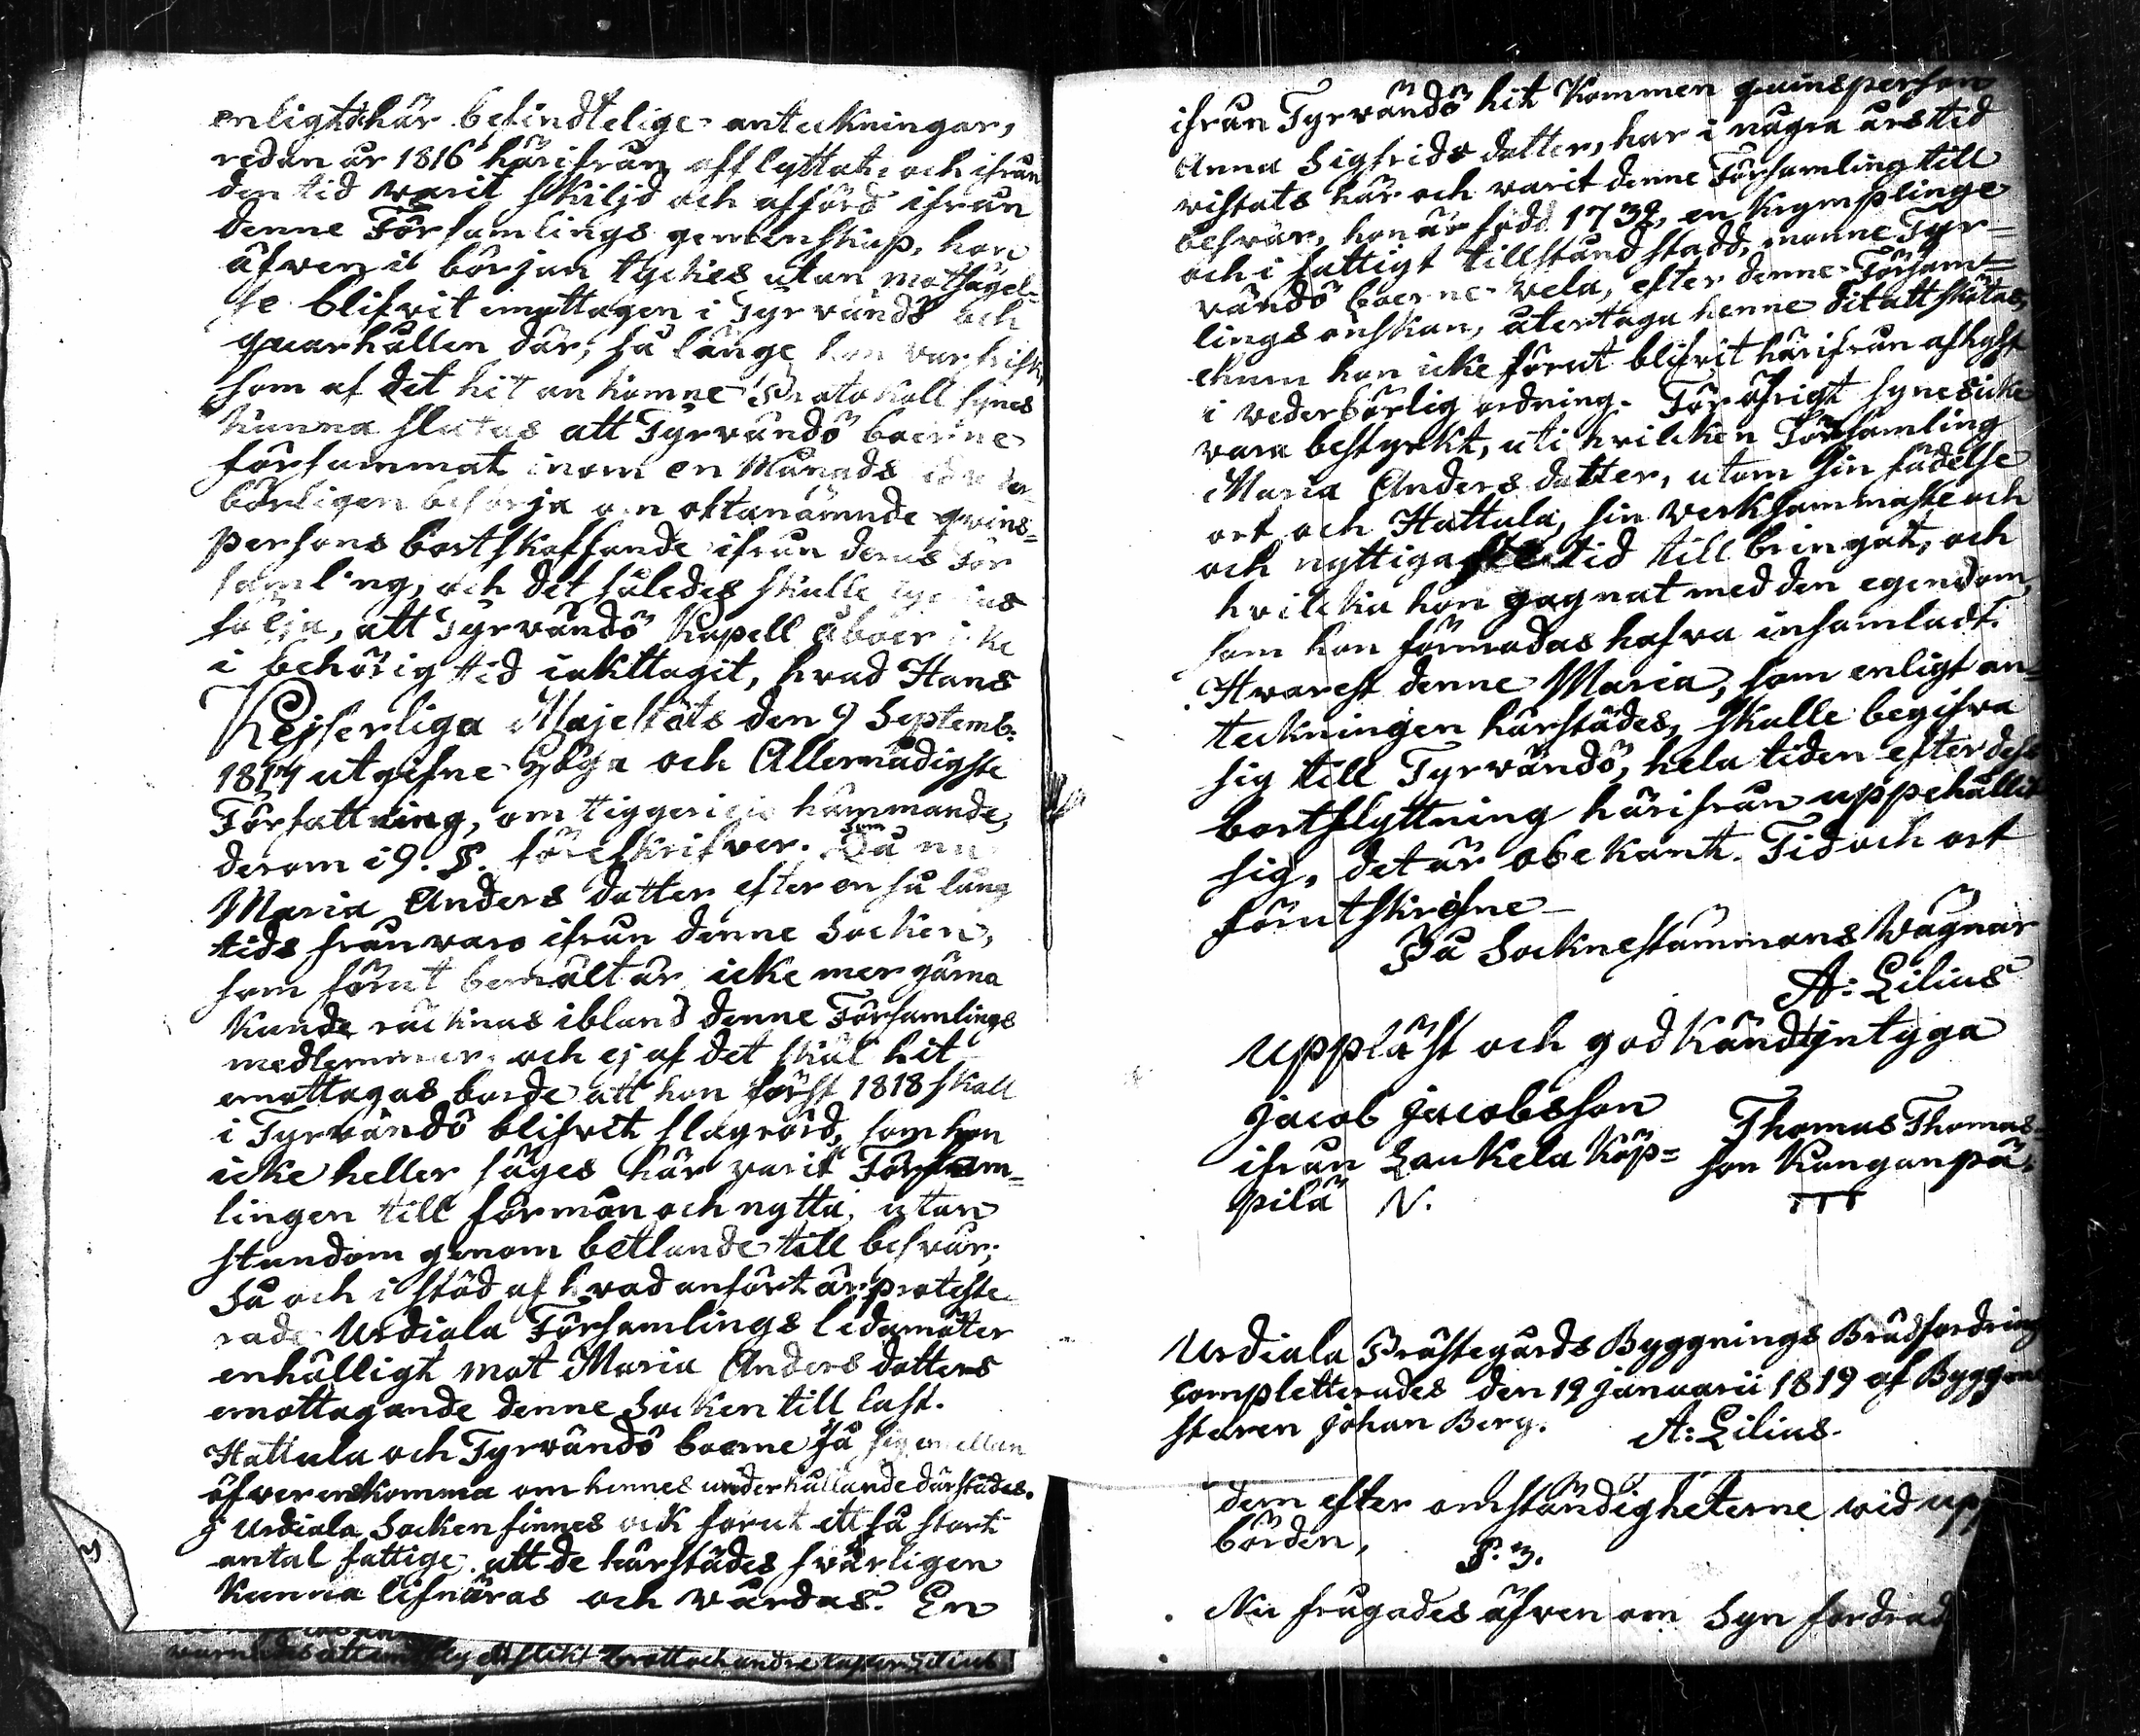 enligt här befindtelige anteckningar,
redan år 1816 härifrån afflyttat och ifrån
den tid warit skiljd och afförd ifrån
denne Församlings gemenskap, hon
äfven i början tyckes utan motsägel=
se blifvit emottagen i Tyrvändö och
quarhållen där, så länge hon war frisk,
som af det hit ankomne Protokoll synes
kunna slutas att Tyrvändö boerne
försummat inom en Månads
börligen besörja om oftanämnde qvins=
persons bortskaffande ifrån deras För
samling, och det således skulle tyckas
följa, att Tyrvändö Kapell åboer icke
i behörig tid iakttagit, hvad Hans
Kejserliga Majestäts den 9 Septemb:
1817 utgifne Höga och Allernådigste
Författning, om tiggeriets hämmande,
derom i 9. §. föreskrifver. Då nu
Maria Anders dotter efter en så lång
tids frånvaro ifrån denne Socken,
som förut bemält är, icke mer gärna
kunde räcknas ibland denne Församlings
medlemmar och ej af det skäl hit
emottagas borde att hon först 1818 skall
i Tyrvändö blifvit slagrörd, som hon
icke heller säges här varit Försam=
lingen till förmån och nytta, utan
stundom genom betlande till besvär;
Så och i stöd af hvad anfört är proteste
rade Urdiala Församlings ledamöter
enhälligt mot Maria Anders dotters
emottagande denne Socken till last.
Hattula och Tyrvändö boerne få sig emellan
öfverenskomma om hennes underhållande därstädes.
I Urdiala Socken finnes ock förut ett så stort
antal fattige, att de härstädes svårligen
kunna lifnäras och vårdas. En
ifrån Tyrvändö hit Kommen quinsperson
Anna Sigfrids dotter, har i några års tid
vistats här och varit denne Församling till
besvär, hon är född 1732, en krympling
och i fattigt tillstånd stadd, monne Tyr=
vändö boerne vela, efter denne Försam=
lings önskan, återtaga henne dit att skötas,
ehuru hon icke förut blifvit härifrån afhyst
i vederbörlig ordning. För öfrigt synes icke
vara bestyrkt, uti hvilcken Församling
Maria Anders dotter, utom sin födelse
ort och Hattula, sin verksammaste och
och nyttigaste tid till bringat, och
hvilcka hon gagnat med den egendom,
som hon förmodas hafva insamladt.
Hvarest denne Maria, som enligt an=
teckningen härstädes, skulle begifva
sig till Tyrvändö, hela tiden efter dess
bortflyttning härifrån uppehållit
sig, det är obekant. Tid och ort
förutskrifne
På Socknestämmans Vägnar
A: Lilius
Uppläst och godkändt intyga
Jacob Jacobsson
ifrån Laukela Köp=
pilä N.
Thomas Thomas=
son Kanganpä.
Urdiala Prästegårds Byggnings Brädfordring
completterades den 19 Januarii 1819 af Byggmä
staren Johan Berg. A: Lilius.
dem efter omständigheterne vid upp
börden,
§. 3.
Nu frågades äfven om Syn fordrad